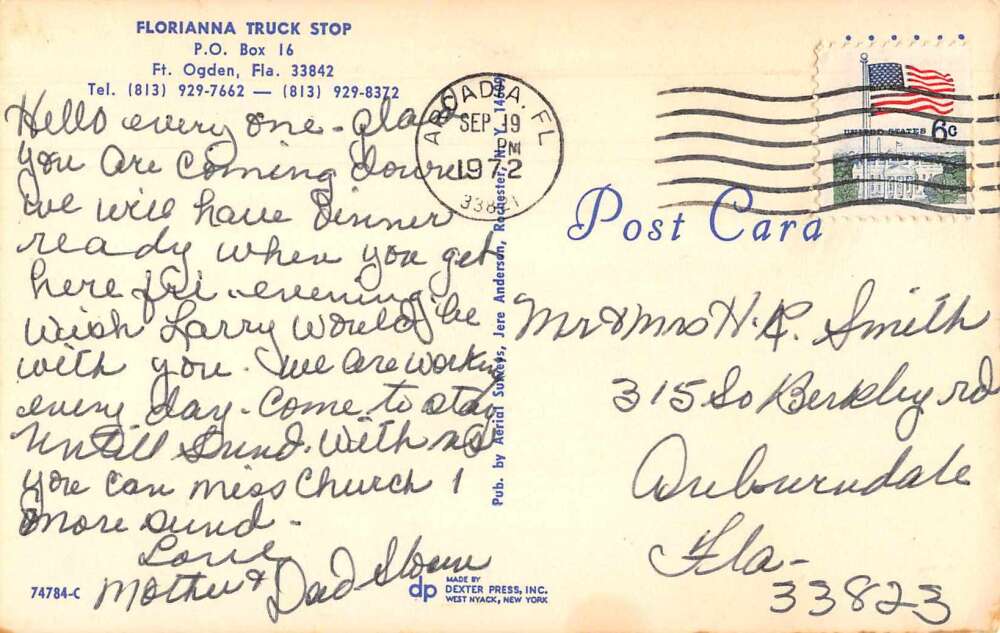 FLORIANNA TRUCK STOP
P.O. Box 16
Ft. Ogden, Fla. 33842
Tel. (813) 929-7662 — (813) 929-8372
Hello every one - glad
you are coming down
we will have dinner
ready when you get
here fri. evening
wish Larry would be
with you. we are working
every day. Come to stay
untill Sund. with us
you can miss Church 1
more sund.
Love
Mother & Dad Sloan
74784-C
Pub. by Aerial Surveys, Jere Anderson, Rochester, N. Y.
dp MADE BY
DEXTER PRESS, INC.
WEST NYACK, NEW YORK
ARCADIA, FL
SEP 19
PM
1972
33821
UNITED STATES 6c
Post Card
Mr & Mrs H. R. Smith
315 So Berkley rd
Auburndale
Fla -
33823